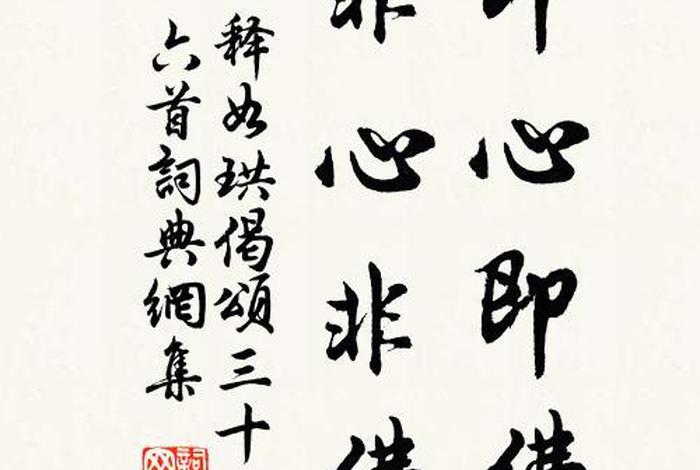 即心即佛
非心非佛
释如珙偈颂三十
六首詞典網集